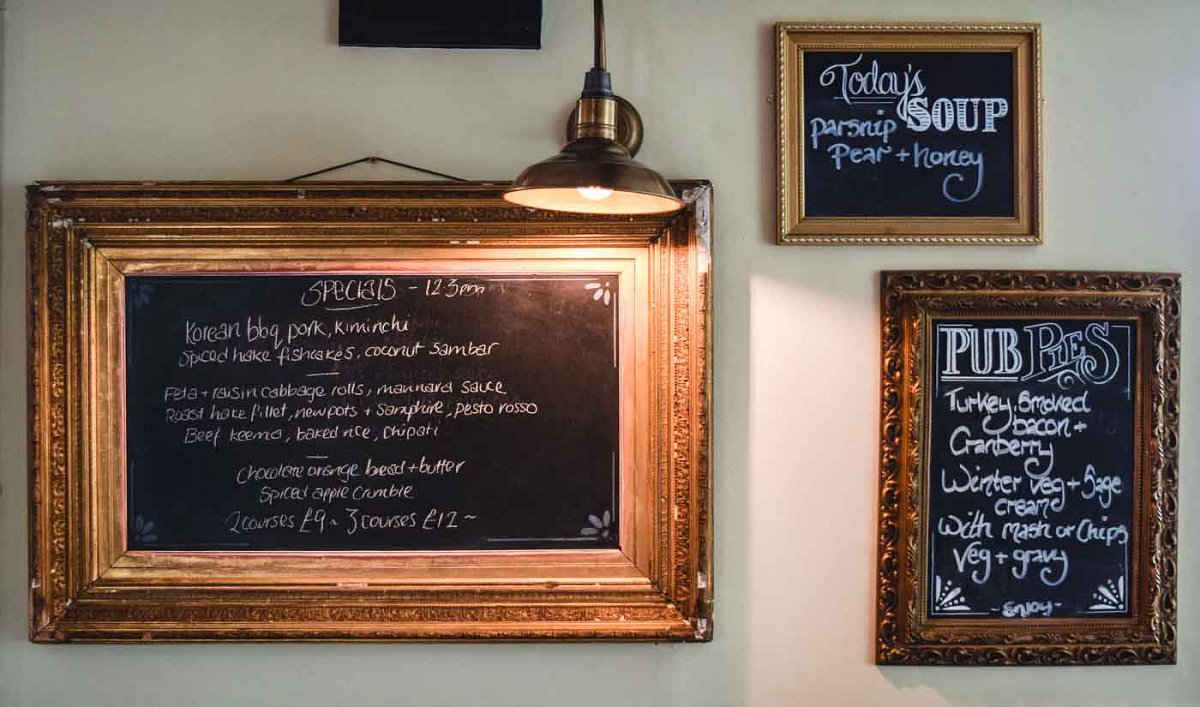 SPECIALS - 12-3pm
Korean bbq pork, kiminchi
Spiced hake fishcakes, coconut sambar
Feta + raisin cabbage rolls, maunara sauce
Roast hake fillet, new pots + samphire, pesto rosso
Beef keema, baked rice, chipati
Chocolate orange bread + butter
Spiced apple crumble
2 courses £9 ~ 3 courses £12 ~
Today's
SOUP
parsnip
Pear + honey
PUB PIES
Turkey, Smoked
bacon +
Cranberry
Winter veg + Sage
cream
With mash or Chips
Veg + gravy
- Enjoy -